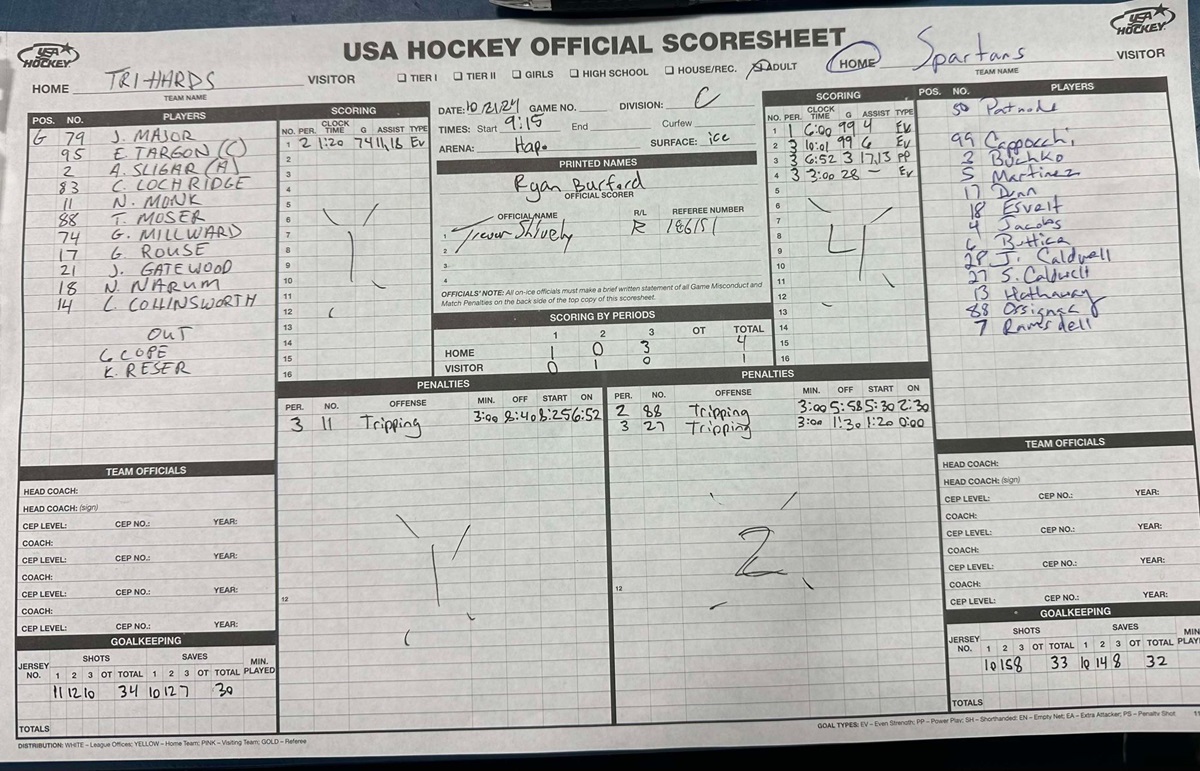 USA HOCKEY OFFICIAL SCORESHEET
USA HOCKEY
USA HOCKEY
HOME TRI-HARDS VISITOR
TEAM NAME
☐ TIER I ☐ TIER II ☐ GIRLS ☐ HIGH SCHOOL ☐ HOUSE/REC. ☒ ADULT
HOME Spartans VISITOR
TEAM NAME
POS. NO. PLAYERS
G 79 J. MAJOR
95 E. TARGON (C)
2 A. SLIGAR (A)
83 C. LOCHRIDGE
11 N. MONK
88 T. MOSER
74 G. MILLWARD
17 G. ROUSE
21 J. GATEWOOD
18 N. NARUM
14 C. COLLINSWORTH
OUT
G COPE
K. RESER
SCORING
NO. PER. CLOCK TIME G ASSIST TYPE
1 2 1:20 74 11,18 Ev
2
3
4
5
6
7
8
9
10
11
12
13
14
15
16
1
DATE: 10/21/24 GAME NO. DIVISION: C
TIMES: Start 9:15 End Curfew
ARENA: Hapo SURFACE: ice
PRINTED NAMES
Ryan Burford
OFFICIAL SCORER
OFFICIAL NAME R/L REFEREE NUMBER
1 Trevor Shively R 186151
2
3
4
OFFICIALS' NOTE: All on-ice officials must make a brief written statement of all Game Misconduct and
Match Penalties on the back side of the top copy of this scoresheet.
SCORING BY PERIODS
1 2 3 OT TOTAL
HOME 1 0 3 4
VISITOR 0 1 0 1
SCORING
NO. PER. CLOCK TIME G ASSIST TYPE
1 1 6:00 99 4 Ev
2 3 10:01 99 6 Ev
3 3 6:52 3 17,13 PP
4 3 3:00 28 – Ev
5
6
7
8
9
10
11
12
13
14
15
16
4
POS. NO. PLAYERS
50 Patnode
99 Cappocchi
3 Buchko
5 Martinez
17 Dunn
18 Esvelt
4 Jacobs
6 Buttice
28 J. Caldwell
27 S. Caldwell
13 Hathaway
88 Orsignac
7 Ramsdell
PENALTIES
PER. NO. OFFENSE MIN. OFF START ON
3 11 Tripping 3:00 8:40 8:25 6:52
12
1
PENALTIES
PER. NO. OFFENSE MIN. OFF START ON
2 88 Tripping 3:00 5:58 5:30 2:30
3 27 Tripping 3:00 1:30 1:20 0:00
12
2
TEAM OFFICIALS
HEAD COACH:
HEAD COACH: (sign)
CEP LEVEL: CEP NO.: YEAR:
COACH:
CEP LEVEL: CEP NO.: YEAR:
COACH:
CEP LEVEL: CEP NO.: YEAR:
COACH:
CEP LEVEL: CEP NO.: YEAR:
GOALKEEPING
JERSEY NO. SHOTS SAVES MIN. PLAYED
1 2 3 OT TOTAL 1 2 3 OT TOTAL
11 12 10 34 10 12 7 30
TOTALS
TEAM OFFICIALS
HEAD COACH:
HEAD COACH: (sign)
CEP LEVEL: CEP NO.: YEAR:
COACH:
CEP LEVEL: CEP NO.: YEAR:
COACH:
CEP LEVEL: CEP NO.: YEAR:
COACH:
CEP LEVEL: CEP NO.: YEAR:
GOALKEEPING
JERSEY NO. SHOTS SAVES MIN. PLAY
1 2 3 OT TOTAL 1 2 3 OT TOTAL
10 15 8 33 10 14 8 32
TOTALS
DISTRIBUTION: WHITE – League Offices; YELLOW – Home Team; PINK – Visiting Team; GOLD – Referee
GOAL TYPES: EV – Even Strength; PP – Power Play; SH – Shorthanded; EN – Empty Net; EA – Extra Attacker; PS – Penalty Shot 11